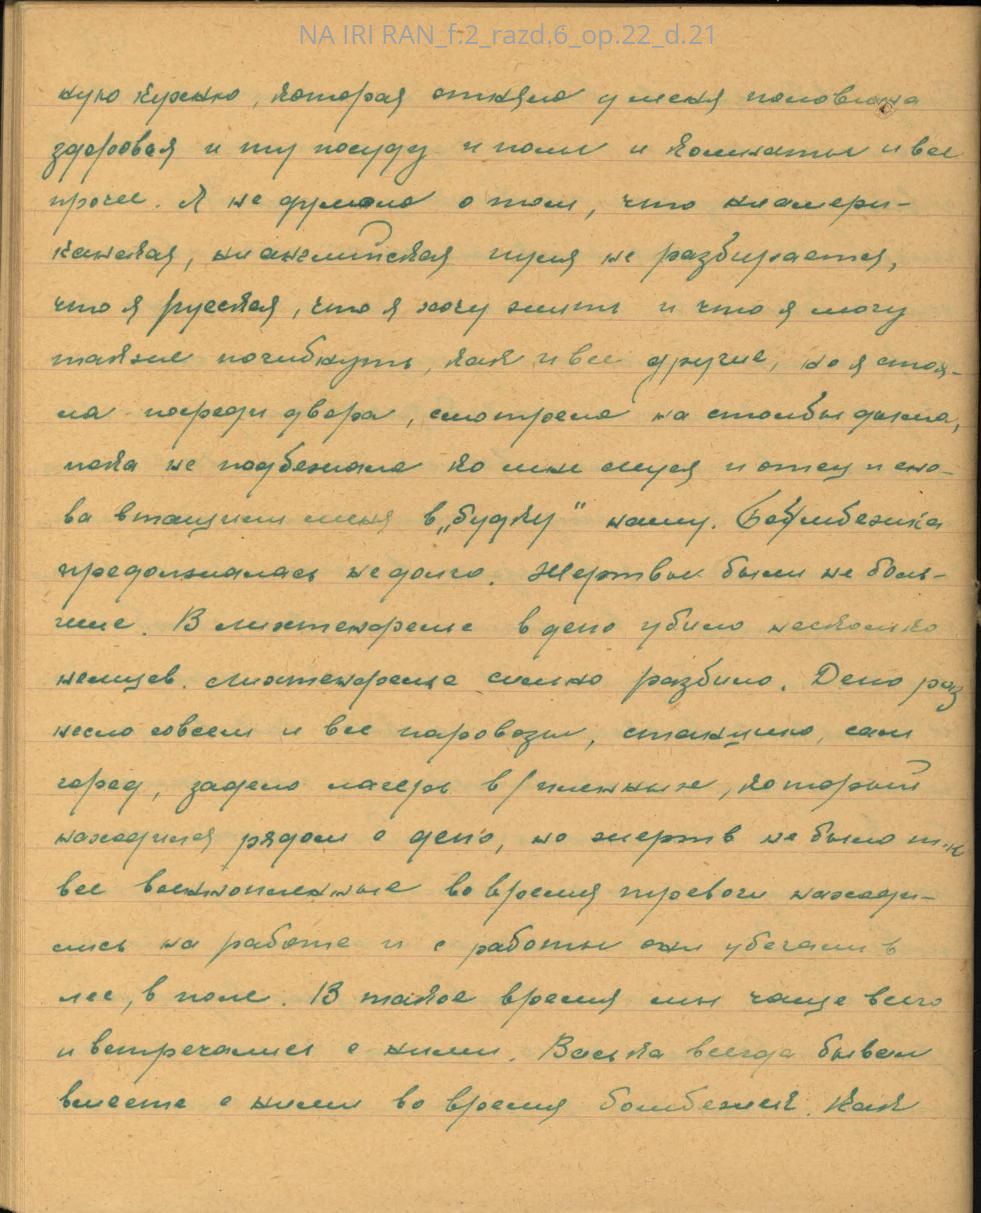 NA IRI RAN_f.2_razd.6_op.22_d.21
ную кухню, которая отняла у меня половина
здоровья и ту посуду и полы и комнаты и все
прочее. Я не думала о том, что ни амери-
канская, ни английская пуля не разбирается,
что я русская, что я хочу жить и что я могу
также погибнуть, как и все другие, но я стоя-
ла посреди двора, смотрела на столбы дыма,
пока не подбежала ко мне Муся и отец и сно-
ва втащили меня в „будку" нашу. Бомбежка
продолжалась не долго. Жертвы были не боль-
шие. В Лихтенфельце в депо убило несколько
немцев. Лихтенфельце сильно разбило. Депо раз
несло совсем и все паровозы, станцию, сам
город, задело лагерь в/пленных, который
находился рядом с депо, но жертв не было т.к
все военнопленные во время тревоги находи-
лись на работе и с работы они убегали в
лес, в поле. В такое время мы чаще всего
и встречались с ними. Васька всегда бывал
вместе с ними во время бомбежек. Как